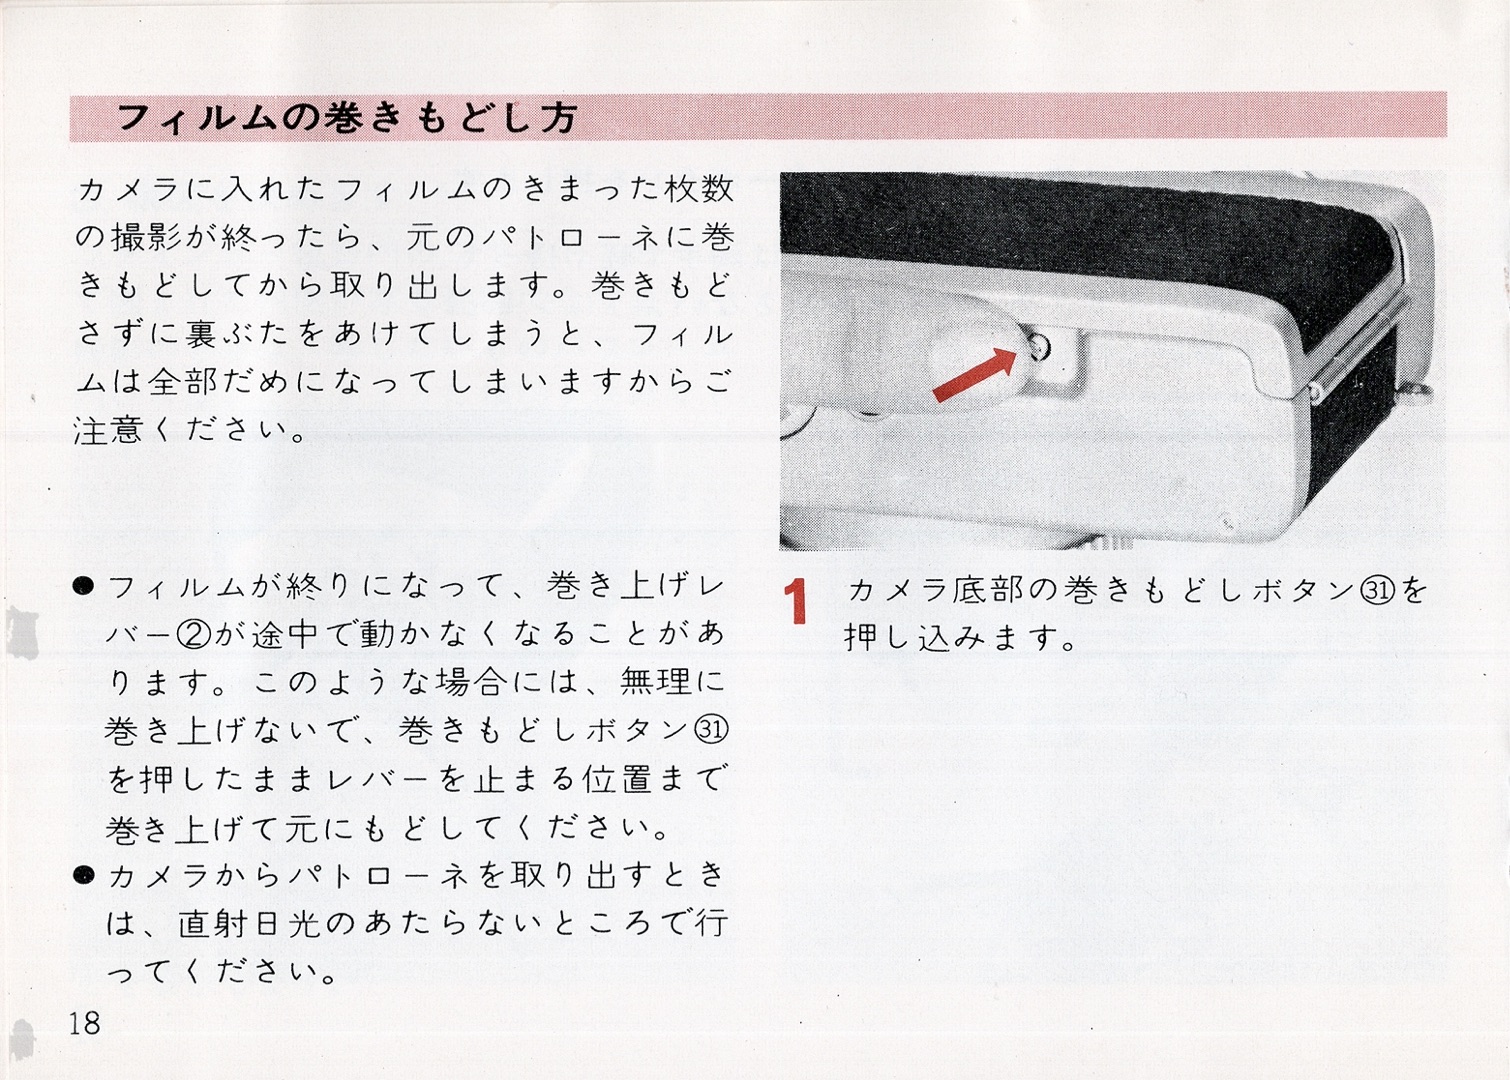 フィルムの巻きもどし方
カメラに入れたフィルムのきまった枚数
の撮影が終ったら、元のパトローネに巻
きもどしてから取り出します。巻きもど
さずに裏ぶたをあけてしまうと、フィル
ムは全部だめになってしまいますからご
注意ください。
●フィルムが終りになって、巻き上げレ
バー②が途中で動かなくなることがあ
ります。このような場合には、無理に
巻き上げないで、巻きもどしボタン㉛
を押したままレバーを止まる位置まで
巻き上げて元にもどしてください。
●カメラからパトローネを取り出すとき
は、直射日光のあたらないところで行
ってください。
1 カメラ底部の巻きもどしボタン㉛を
押し込みます。
18